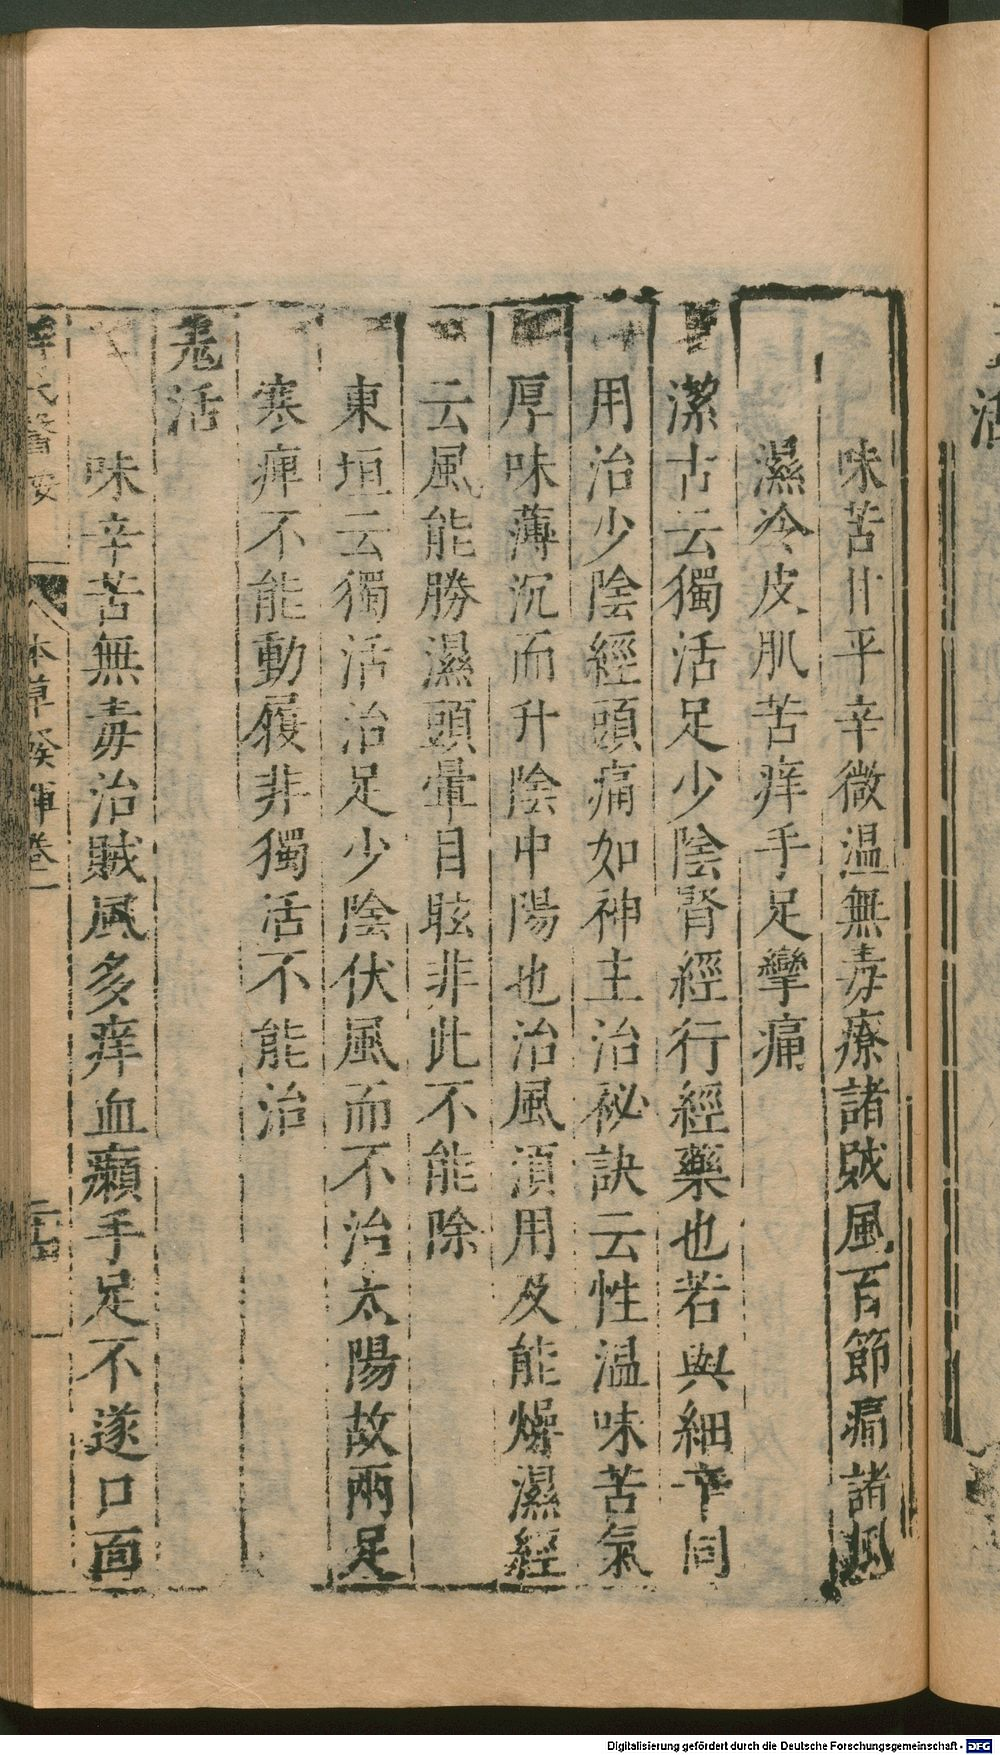 味苦甘平辛微温無毒療諸賊風百節痛諸風
濕冷皮肌苦痒手足攣痛
潔古云獨活足少陰腎經行經藥也若與細辛同
用治少陰經頭痛如神主治祕訣云性温味苦氣
厚味薄沉而升陰中陽也治風須用及能燥濕經
云風能勝濕頭暈目眩非此不能除
東垣云獨活治足少陰伏風而不治太陽故兩足
寒痺不能動履非獨活不能治
羌活
味辛苦無毒治賊風多痒血癩手足不遂口面
本草發揮卷一
活
Digitalisierung gefördert durch die Deutsche Forschungsgemeinschaft - DFG